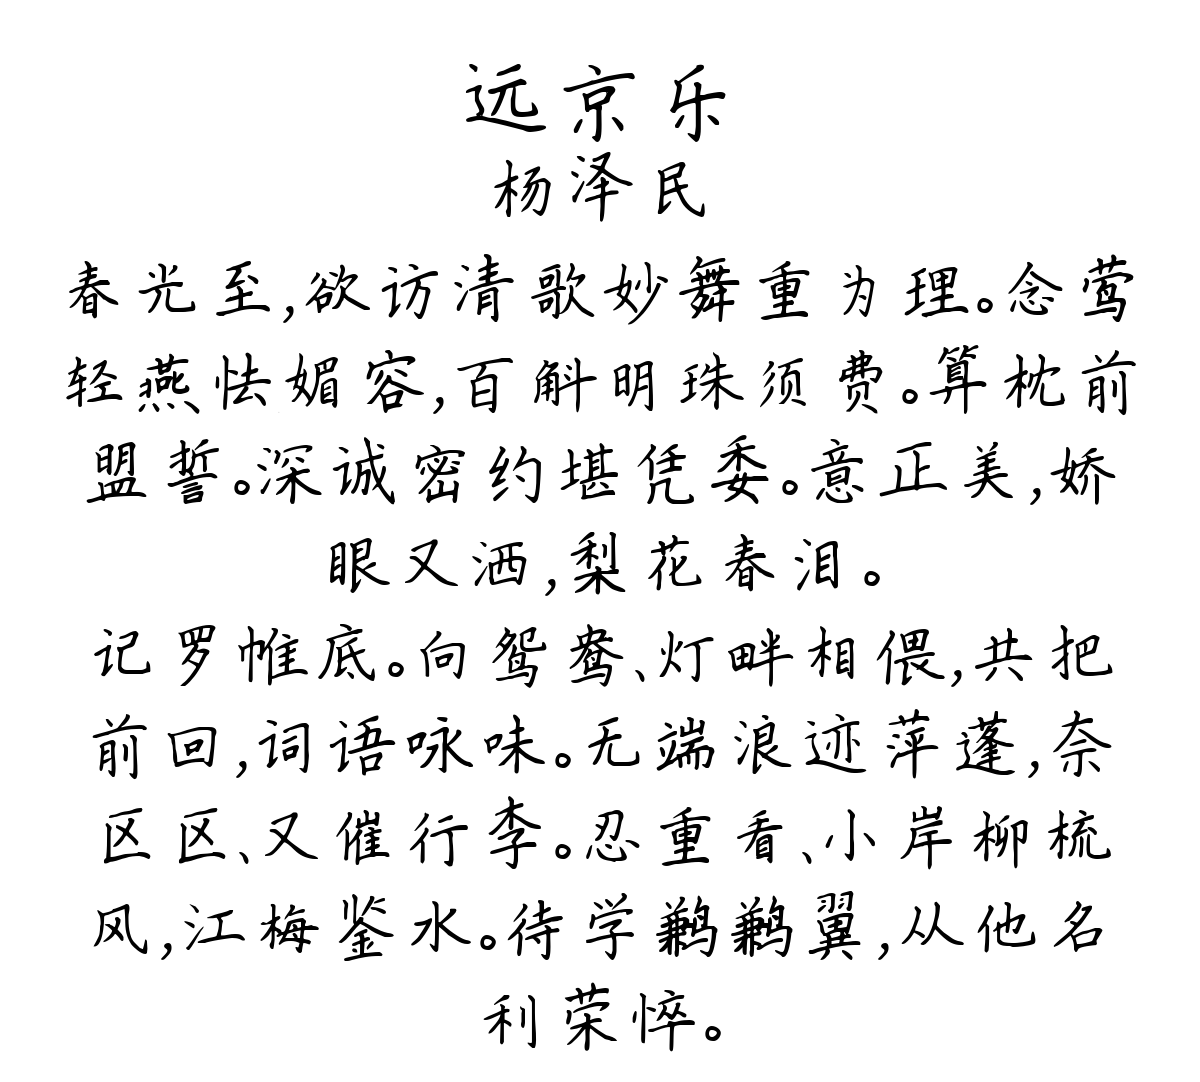 远京乐
杨泽民
春光至,欲访清歌妙舞重为理。念莺
轻燕怯媚容,百斛明珠须费。算枕前
盟誓。深诚密约堪凭委。意正美,娇
眼又洒,梨花春泪。
记罗帷底。向鸳鸯、灯畔相偎,共把
前回,词语咏味。无端浪迹萍蓬,奈
区区、又催行李。忍重看、小岸柳梳
风,江梅鉴水。待学鹣鹣翼,从他名
利荣悴。